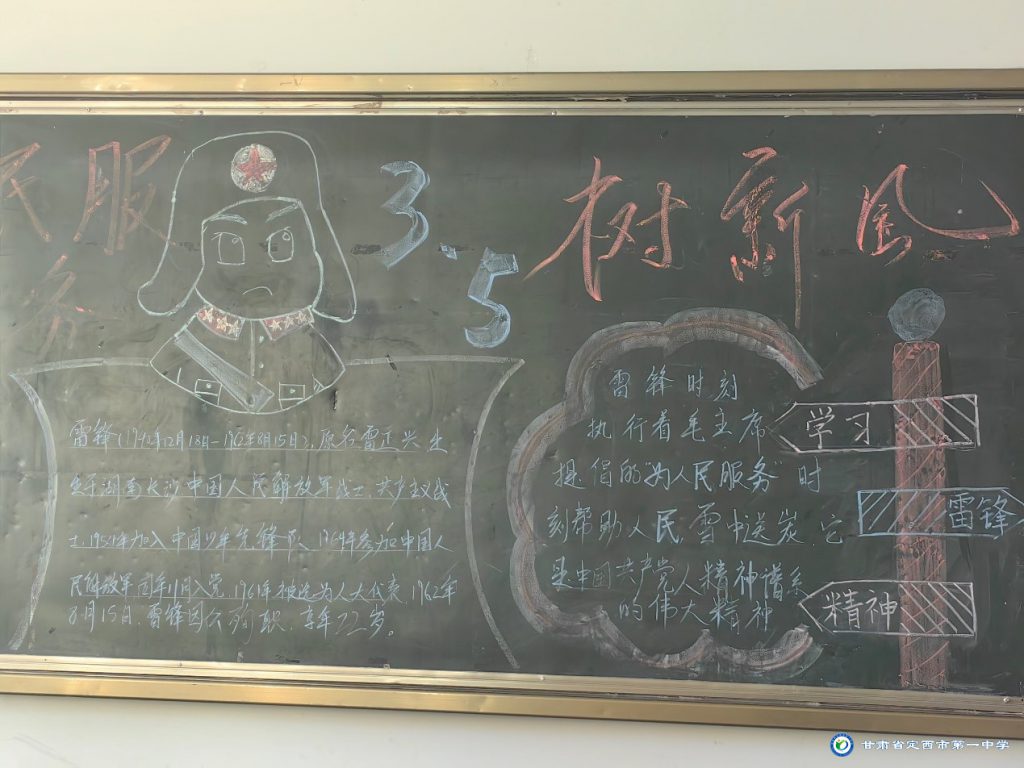 民服
务
3.5
树新风
雷锋(1940年12月18日-1962年8月15日),原名雷正兴 生
生于湖南长沙 中国人民解放军战士 共产主义战
士,1954年加入中国少年先锋队、1960年参加中国人
民解放军 同年11月入党,1961年被选为人大代表,1962年
8月15日,雷锋因公殉职,享年22岁。
雷锋时刻
执行着毛主席
提倡的“为人民服务”时
刻帮助人民,雪中送炭,它
是中国共产党人精神谱系
的伟大精神
学习
雷锋
精神
甘肃省定西市第一中学